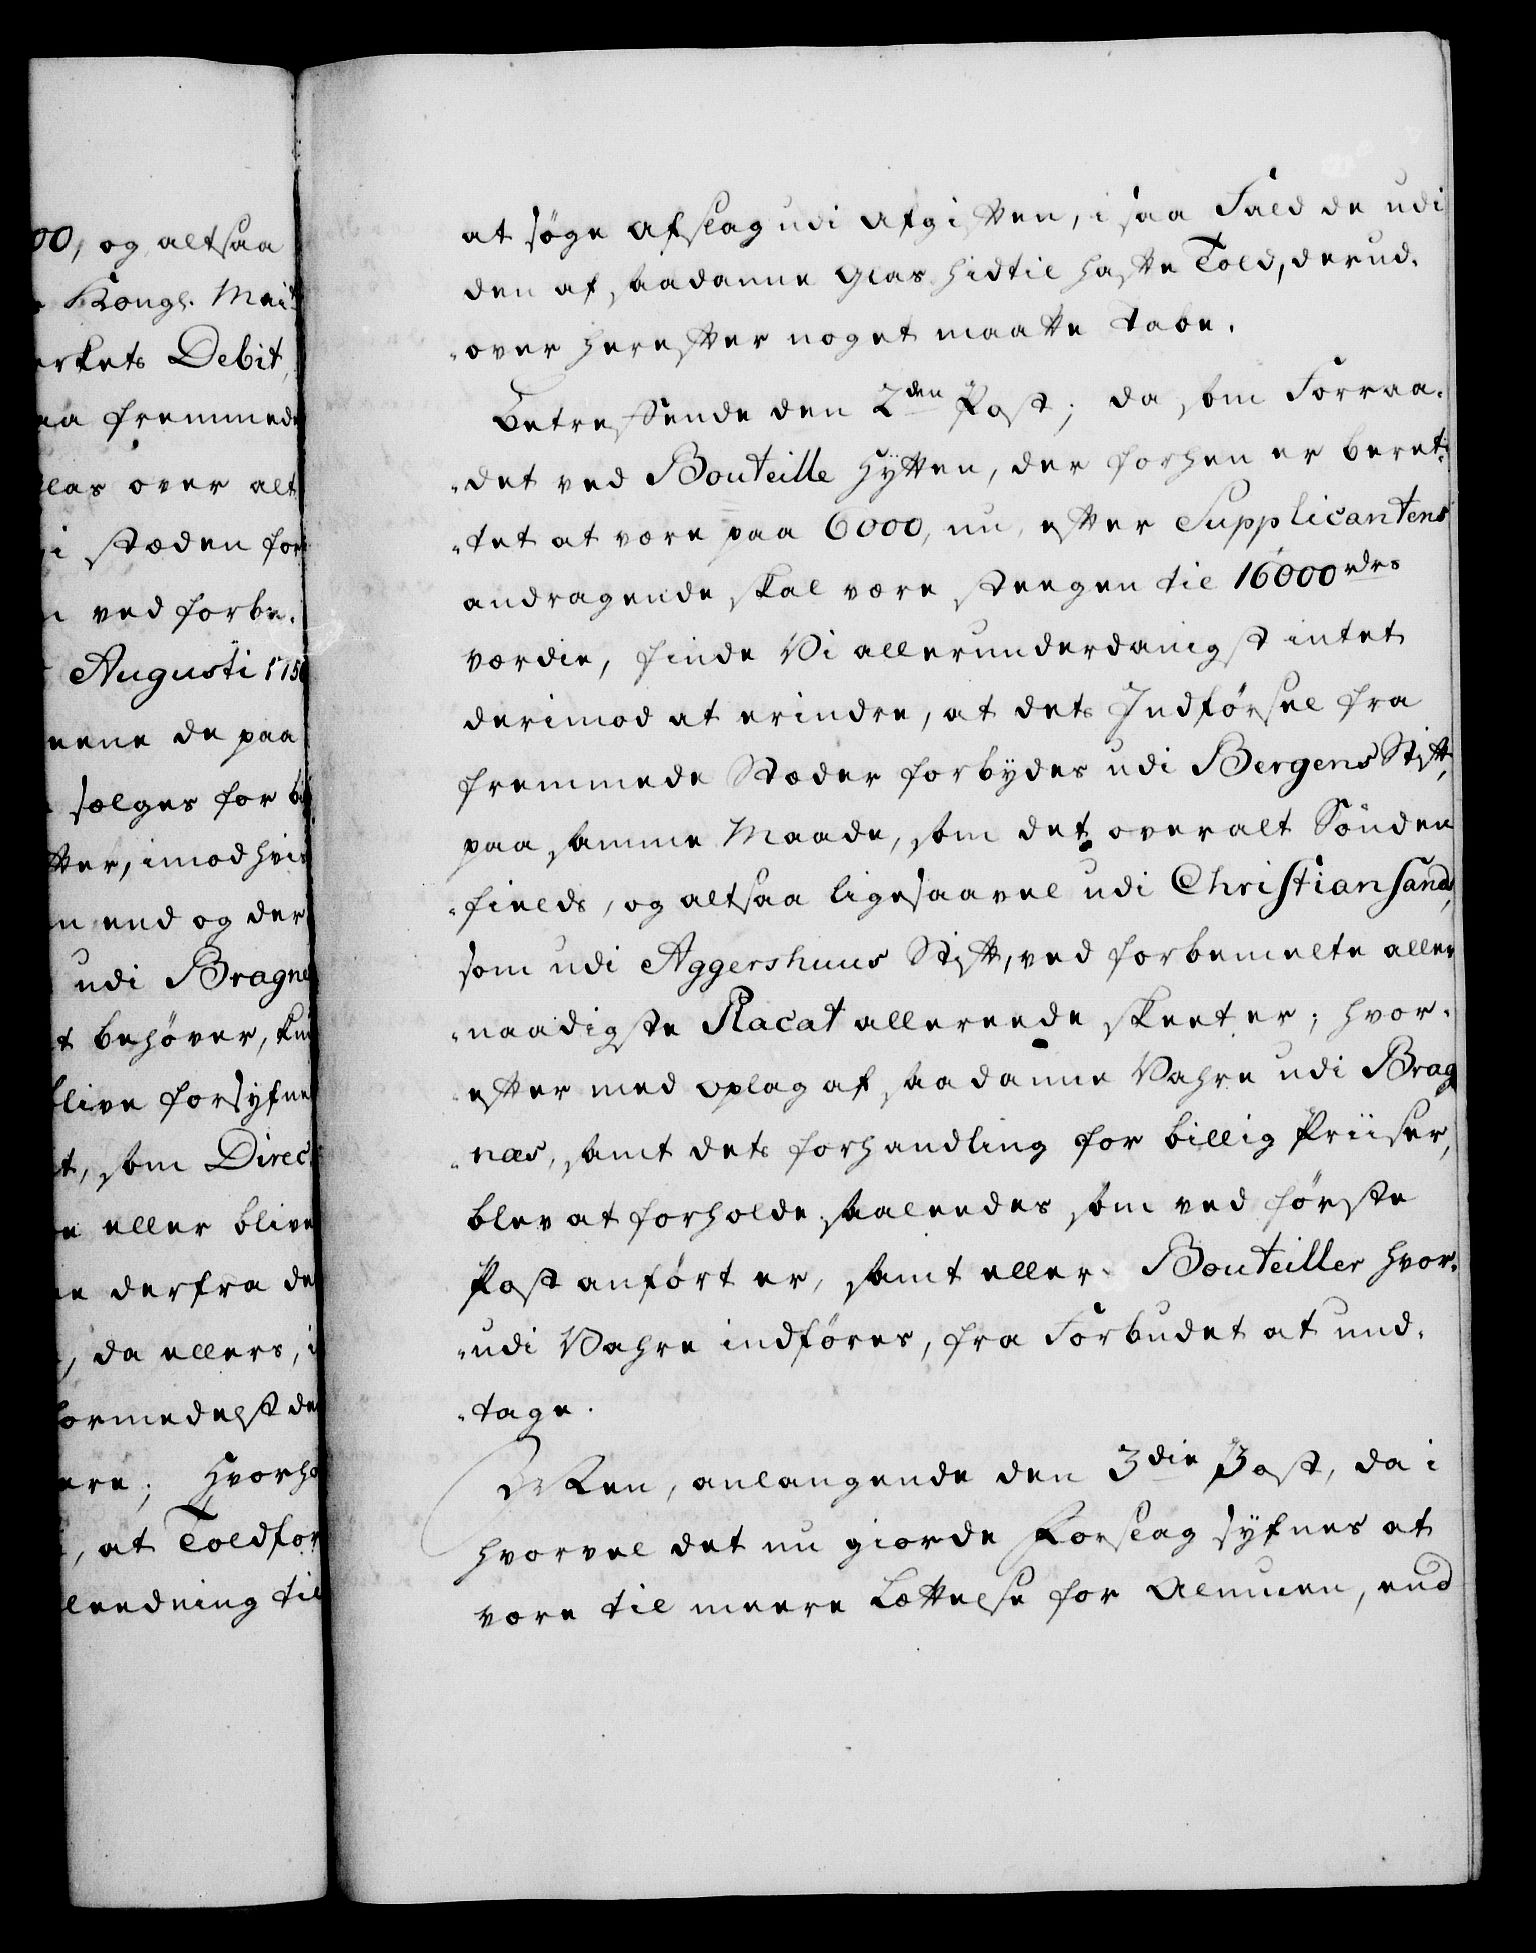 00, og altsaa
Kongl. Mait
erkets Debit,
aa fremmede
las over alt
i stæden for
ved forbe-
Augusti 175
eene de paa
sælges for bil
tter, imod hvis
n end og der
udi Bragne
t behøver, kun
blive forsyfne
t, som Direc
e eller blive
ne derfra de
, da ellers, i
formedelst de
ere; hvorho
, at Toldfor
leedning til
at søge afslag udi Afgiften, i saa Fald de udi
den af saadanne Glas hidtil hafte Told, derud-
-over herefter noget maatte tabe.
Betreffende den 2den Post; da som Forraa-
-det ved Bouteille Hytten, der forhen er beret-
-tet at være paa 6000, nu, efter Supplicantens
andragende skal være steegen til 16000 rdrs
værdie, finde Vi allerunderdanigst intet
derimod at erindre, at dets Indførsel fra
fremmede Stæder forbydes udi Bergens Stift,
paa samme Maade, som det overalt Sönden
-fields, og altsaa ligesaavel udi Christiansands,
som udi Aggershuus Stift, ved forbemelte aller
-naadigste Placat allereede skeet er; hvor-
-efter med oplag af saadanne Vahre udi Brag
-næs, samt dets forhandling for billig Priiser,
blev at forholde saaleedes som ved første
Post anført er, samt eller Bouteiller hvor-
-udi Vahre indføres, fra Forbudet at und-
-tage.
Men, anlangende den 3die Post, da i
hvorvel det nu giorde Forslag syfnes at
være til meere Lættelse for Almuen, end